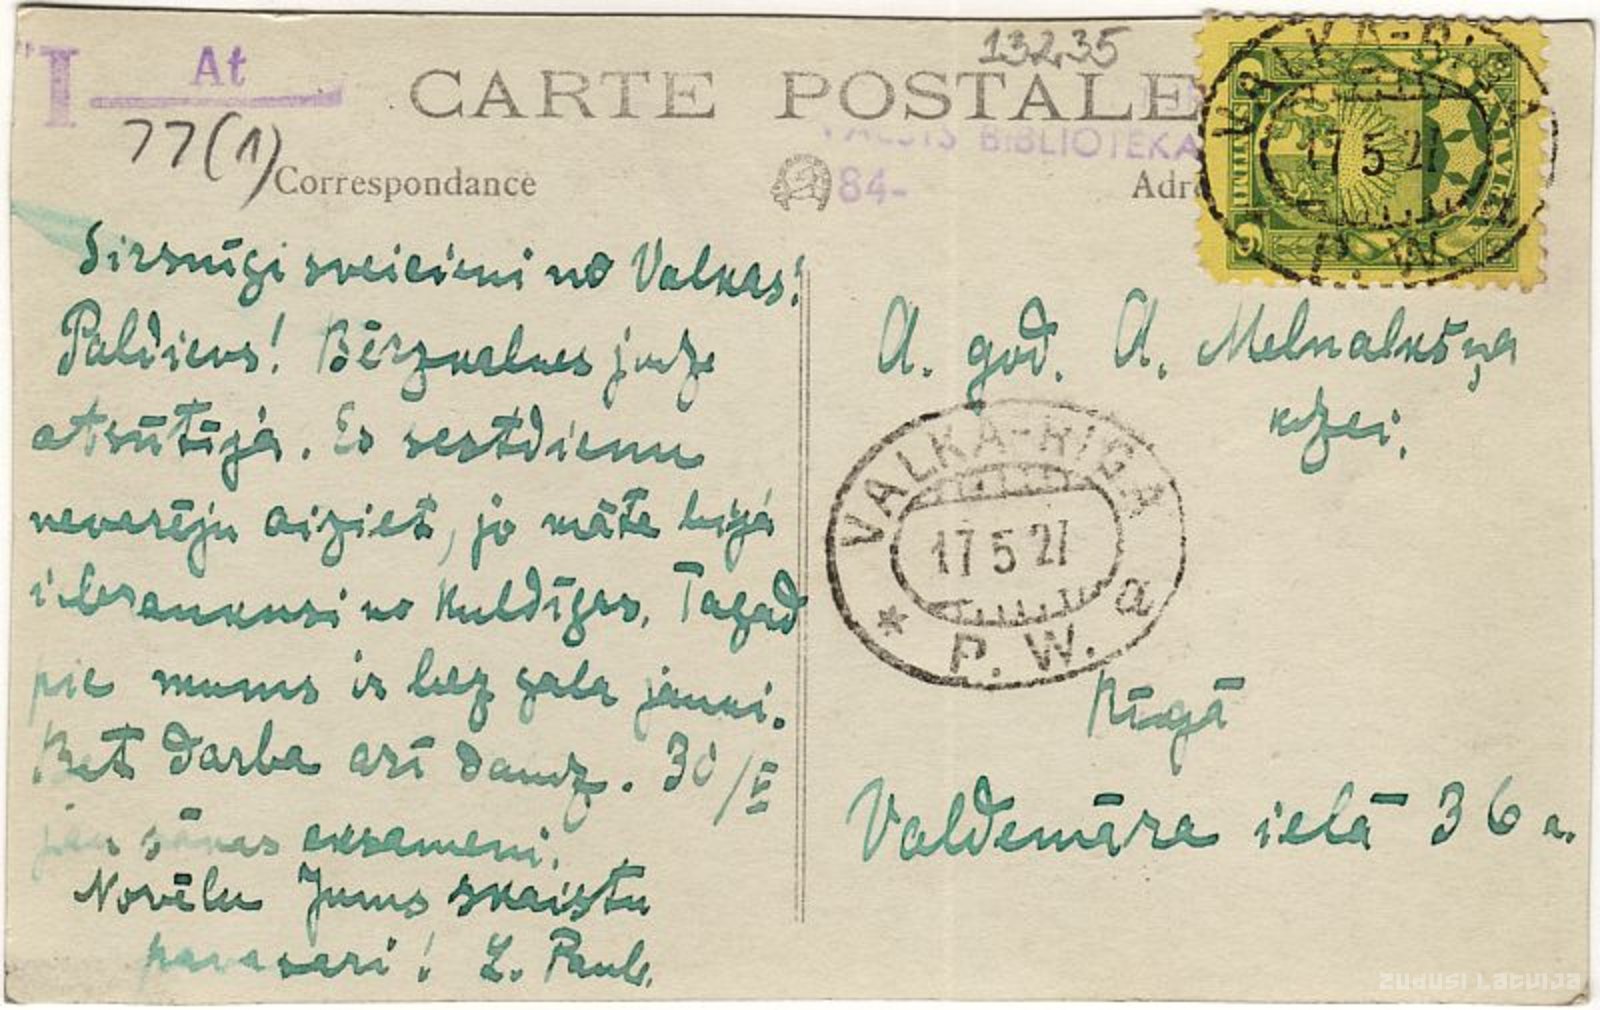 "T At
77(1)
13235
CARTE POSTALE
VALSTS BIBLIOTEKA
84-
Correspondance
Adr
VALKA-RIGA
17 5 27
P. W. a
LATVIJA
Sirsnīgi sveicieni no Valkas!
Paldievs! Bērzkalnes jndze
atsūtīja. Es sestdienu
nevarēju aiziet, jo māte bija
iebraukusi no Kuldīgas. Tagad
pie mums ir bez gala jauki.
Bet darba arī daudz. 30/V
jau sānas eksameni.
Novēlu Jums skaistu
pavasari! L. Paul.
A. god. A. Melnalkšņa
kdzei.
VALKA-RIGA
17 5 27
* P. W. a
Rīgā
Valdemāra ielā 36 a.
zudusi Latvija